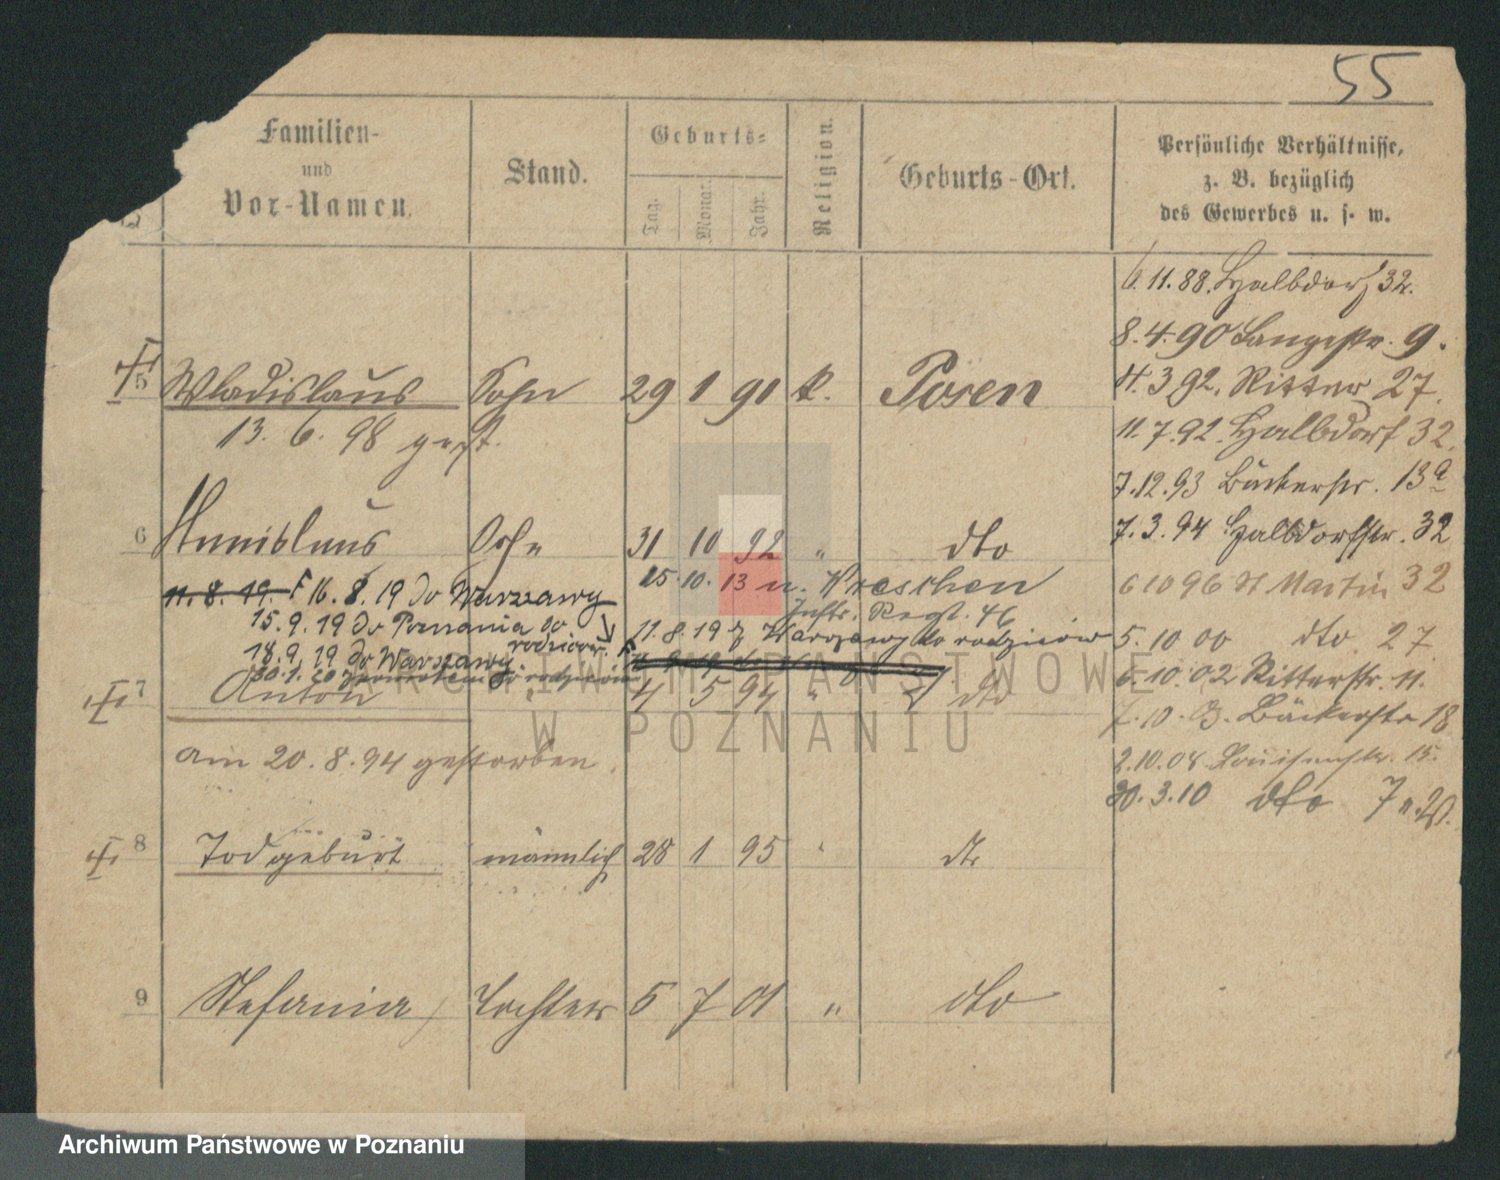 55
Familien-
und
Vor-Namen.
Stand.
Geburts-
Tag.
Monat.
Jahr.
Religion.
Geburts-Ort.
Persönliche Verhältnisse,
z. B. bezüglich
des Gewerbes u. s. w.
6.11.88. Halbdorf 32.
8.4.90 Langestr. 9.
4.3.92. Ritter 27.
11.7.92. Halbdorf 32.
7.12.93 Bäckerstr. 13a
7.3.94 Halbdorfstr. 32
6 10 96 St Martin 32
5.10 00 dto 27
6.10.02 Ritterstr. 11.
7.10.03. Bäckerstr 18
2.10.08. Louisenstr. 15.
30.3.10 dto 7
5 Wladislaus Sohn 29 1 91 k. Posen
13. 6. 98 gest.
6 Stanislaus Sohn 31 10 92 " dto
15.10.13 n. Wreschen
Inftr. Regt. 46
11.8.19 F 16.8.19 do Warszawy
11.8.19 z Warszawy do rodziców
15.9.19 do Poznania do
rodziców.
18.9.19 do Warszawy
30.1.20 do rodziców
7 Anton " 4 5 94 " dto
am 20.8.94 gestorben.
8 Todgeburt männlich 28 1 95 " dto
9 Stefania Tochter 5 7 01 " dto
ARCHIWUM PAŃSTWOWE
W POZNANIU
Archiwum Państwowe w Poznaniu